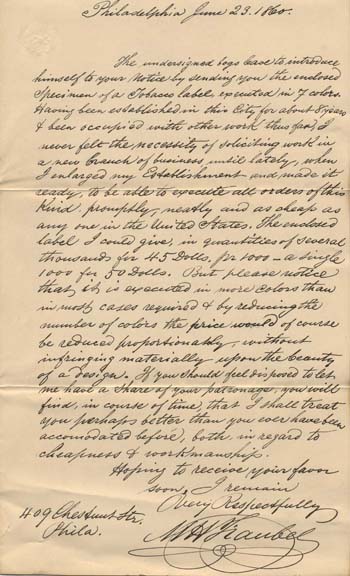 Philadelphia June 23. 1860.
The undersigned begs leave to introduce
himself to your Notice by sending you the enclosed
Specimen of a Tobacco label, executed in 7 colors.
Having been established in this City for about 8 years
& been occupied with other work thus far, I
never felt the necessity of soliciting work in
a new branch of business, until lately, when
I enlarged my Establishment and made it
ready, to be able to execute all orders of this
Kind promptly, neatly and as cheap as
any one in the United States. The enclosed
label I could give, in quantities of several
thousands for 45 Dolls. for 1000 – a single
1000 for 50 Dollars. But please notice
that it is executed in more colors than
in most cases required & by reducing the
number of colors the price would of course
be reduced proportionably, without
infringing materially upon the beauty
of a design. If you should feel disposed to let
me have a Share of your patronage, you will
find, in course of time, that I shall treat
you perhaps better than you ever have been
accomodated before, both in regard to
cheapness & workmanship.
Hoping to receive your favor
soon, I remain
Very Respectfully
M H Traubel
409 Chestnut Str.
Phila.